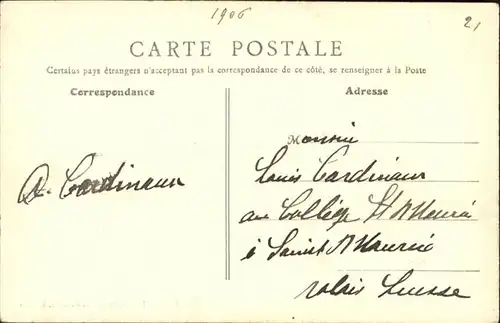 1906
21
CARTE POSTALE
Certains pays étrangers n'acceptant pas la correspondance de ce côté, se renseigner à la Poste
Correspondance
Adresse
Monsieur
Louis Cardinaux
A. Cardinaux
au Collège St Maurice
à Saint Maurice
Valais Suisse